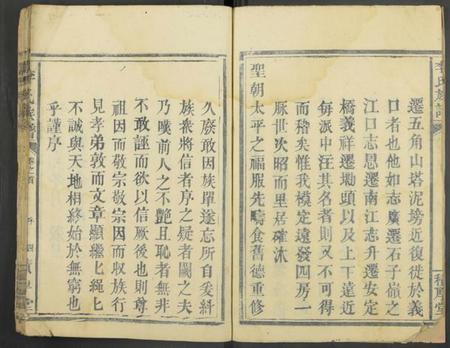 遷五角山塔泥塝近復徙於義
口者也他如志廣遷石子嶺之
江口志思遷南江志升遷安定
橋義祥遷坳頭以及上下遠近
每派中注其名者則又不可得
而稽矣惟我模定遠發四房一
脈世次昭而里居確沐
聖朝太平之福服先疇食舊德重修
久廢敢因族單遂忘所自爰糾
族衆將信者序之疑者闕之夫
乃嘆前人之不艷且恥者無非
不敢誣而欲以信厥後也則尊
祖因而敬宗敬宗因而收族行
見孝弟敦而文章顯繼繼繩繩
不誠與天地相終始於無窮也
乎謹序
李氏族譜
卷之首
序